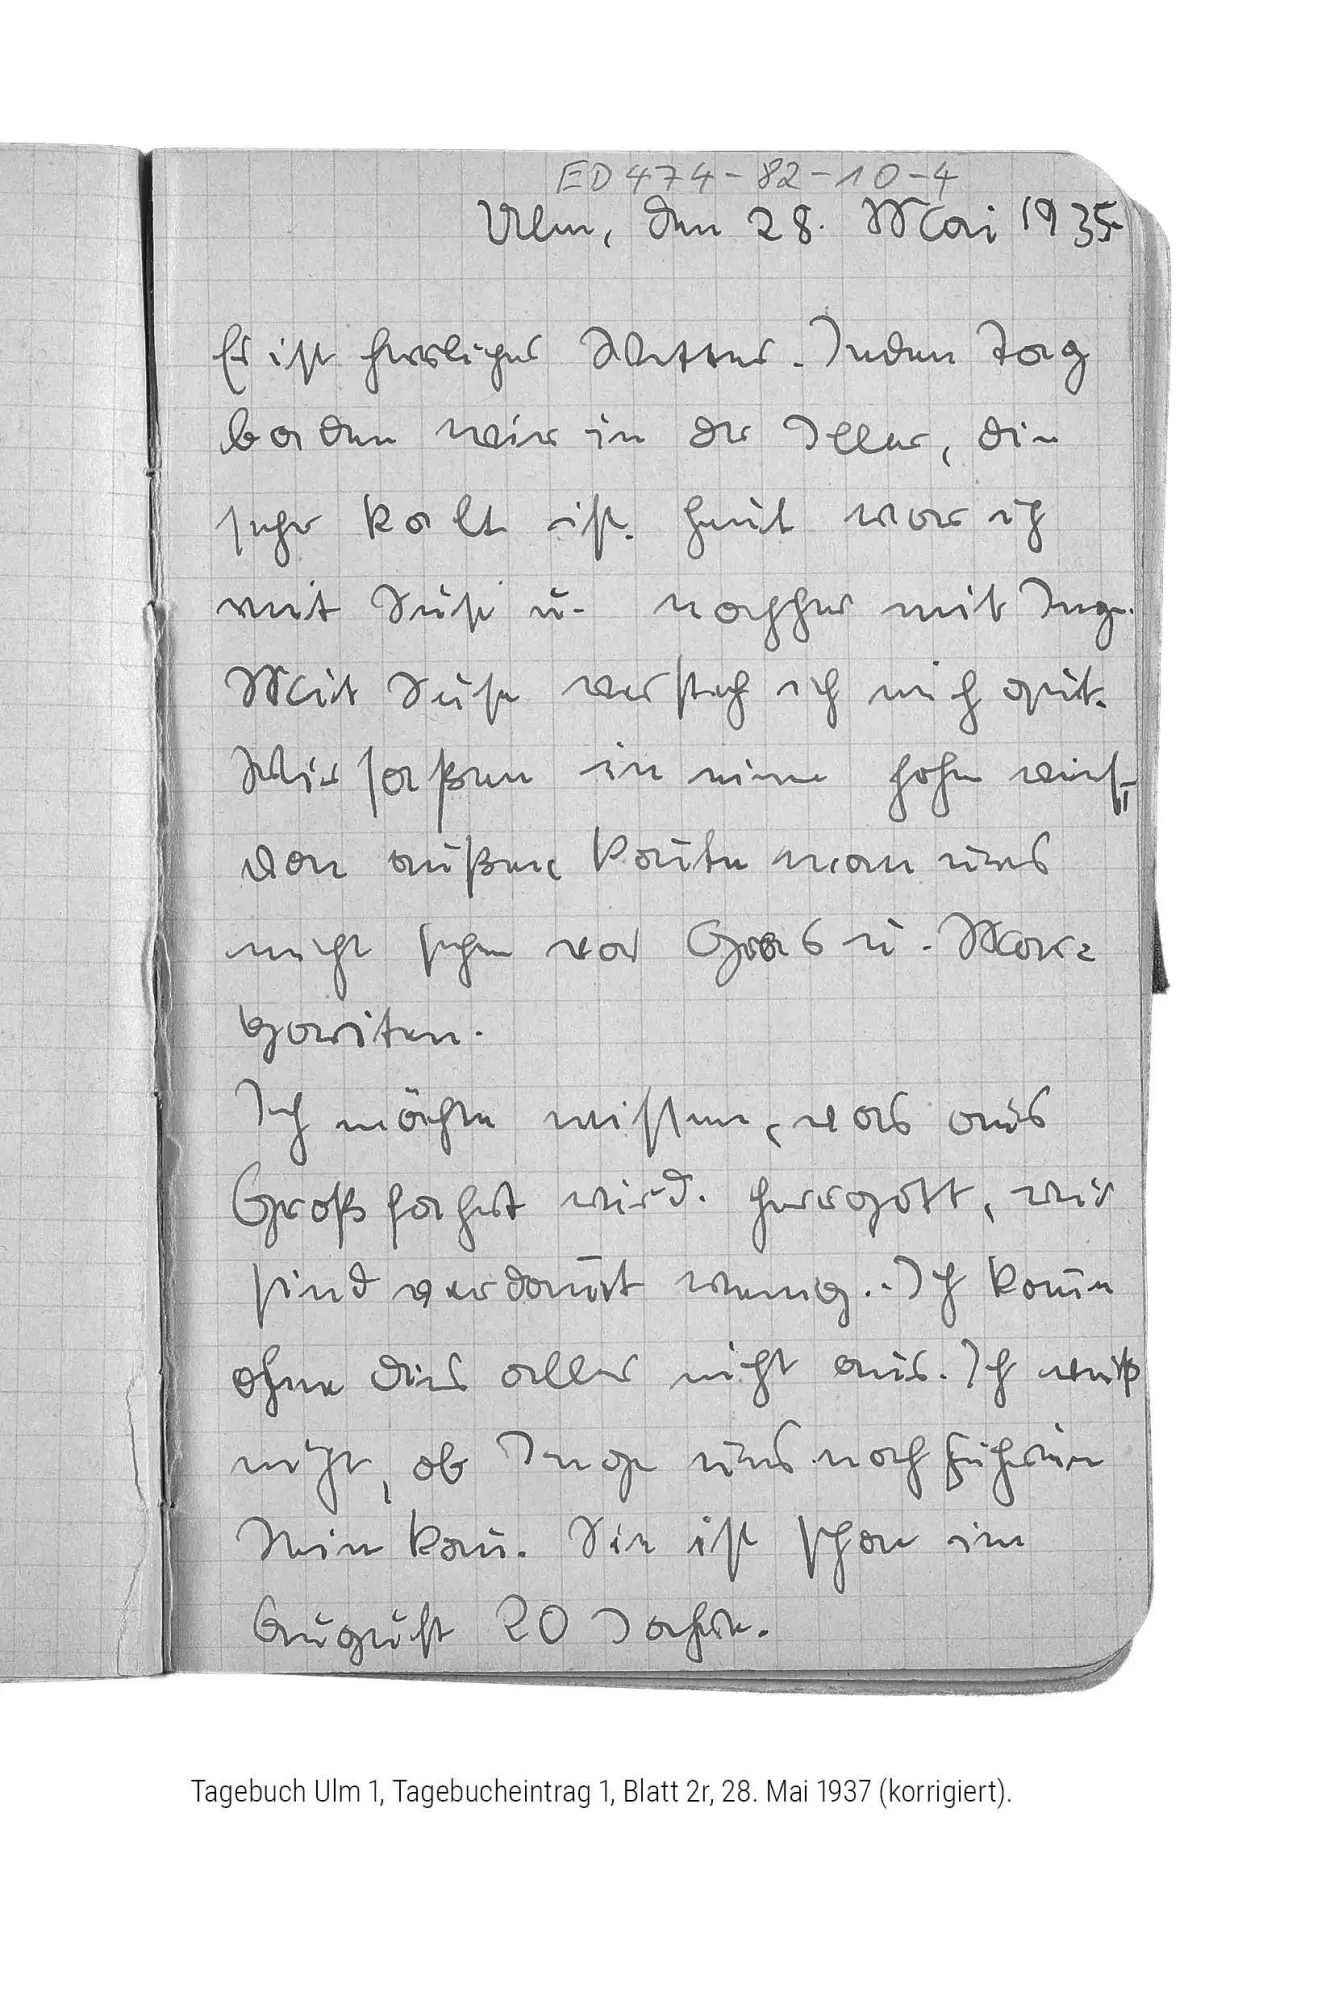 ED 474-82-10-4
Ulm, den 28. Mai 1935
Es ist herrliches Wetter. Jeden Tag
baden wir in der Iller, die
sehr kalt ist. Heut war ich
mit Suse u. nachher mit Inge.
Mit Suse versteh ich mich gut.
Wir saßen in einer hohen
von außen konnte man uns
nicht sehen vor Gras u. Mar=
gariten.
Ich möchte wissen, was aus
Großfahrt wird. Herrgott, wir
sind verdammt wenig. Ich komme
ohne dies alles nicht aus. Ich weiß
nicht, ob Inge uns noch Führerin
sein kann. Sie ist schon im
August 20 Jahre.
Tagebuch Ulm 1, Tagebucheintrag 1, Blatt 2r, 28. Mai 1937 (korrigiert).